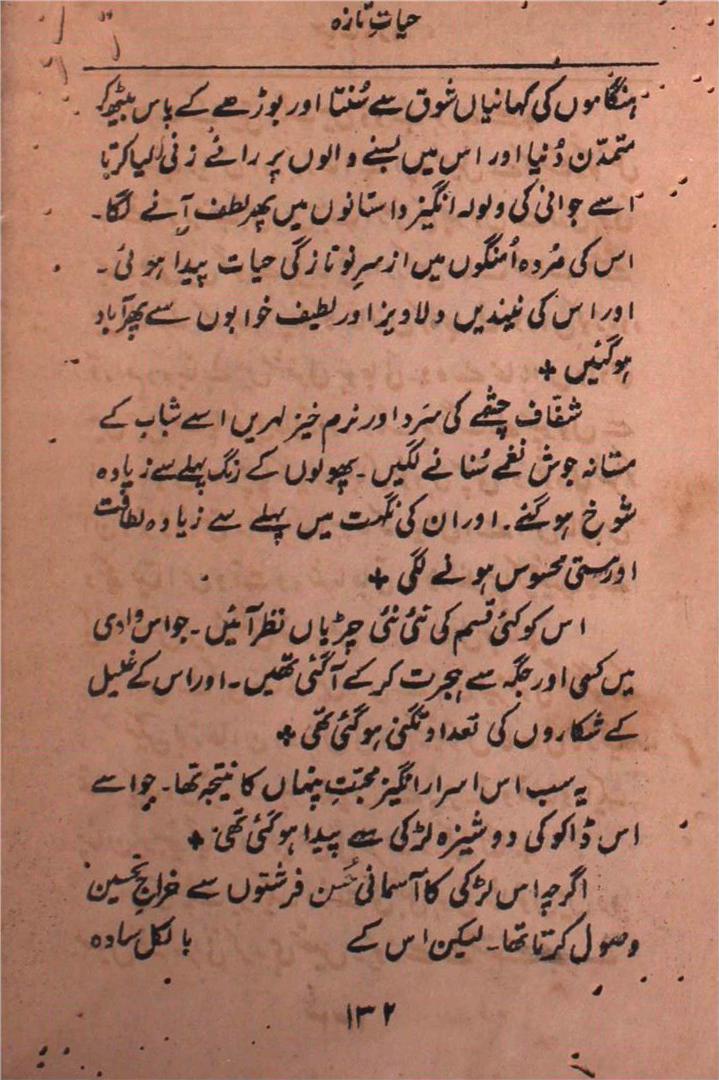 حیاتِ تازہ
ہنگاموں کی کہانیاں شوق سے سُنتا اور بوڑھے کے پاس بیٹھ کر
متمدّن دُنیا اور اس میں بسنے والوں پر رائے زنی کیا کرتا
اسے جوانی کی ولولہ انگیز داستانوں میں پھر لطف آنے لگا۔
اس کی مُردہ اُمنگوں میں از سرِ نو تازگی حیات پیدا ہوئی۔
اور اس کی نیندیں دلاویز اور لطیف خوابوں سے پھر آباد
ہوگئیں +
شفّاف چشمے کی سَرد اور نرم خیز لہریں اسے شباب کے
مستانہ جوش نغمے سُنانے لگیں۔ پھولوں کے رنگ پہلے سے زیادہ
شوخ ہوگئے۔ اور ان کی نگہت میں پہلے سے زیادہ لطافت
اور مستی محسوس ہونے لگی +
اس کو کئی قسم کی نئی نئی چڑیاں نظر آئیں۔ جو اس وادی
میں کسی اور جگہ سے ہجرت کر کے آگئی تھیں۔ اور اس کے غلیل
کے شکاروں کی تعداد تگنی ہوگئی تھی +
یہ سب اس اسرار انگیز محبّتِ پنہاں کا نتیجہ تھا۔ جو اسے
اس ڈاکو کی دوشیزہ لڑکی سے پیدا ہوگئی تھی +
اگرچہ اس لڑکی کا آسمانی حُسن فرشتوں سے خراجِ تحسین
وصول کرتا تھا۔ لیکن اس کے بالکل سادہ
۱۳۲